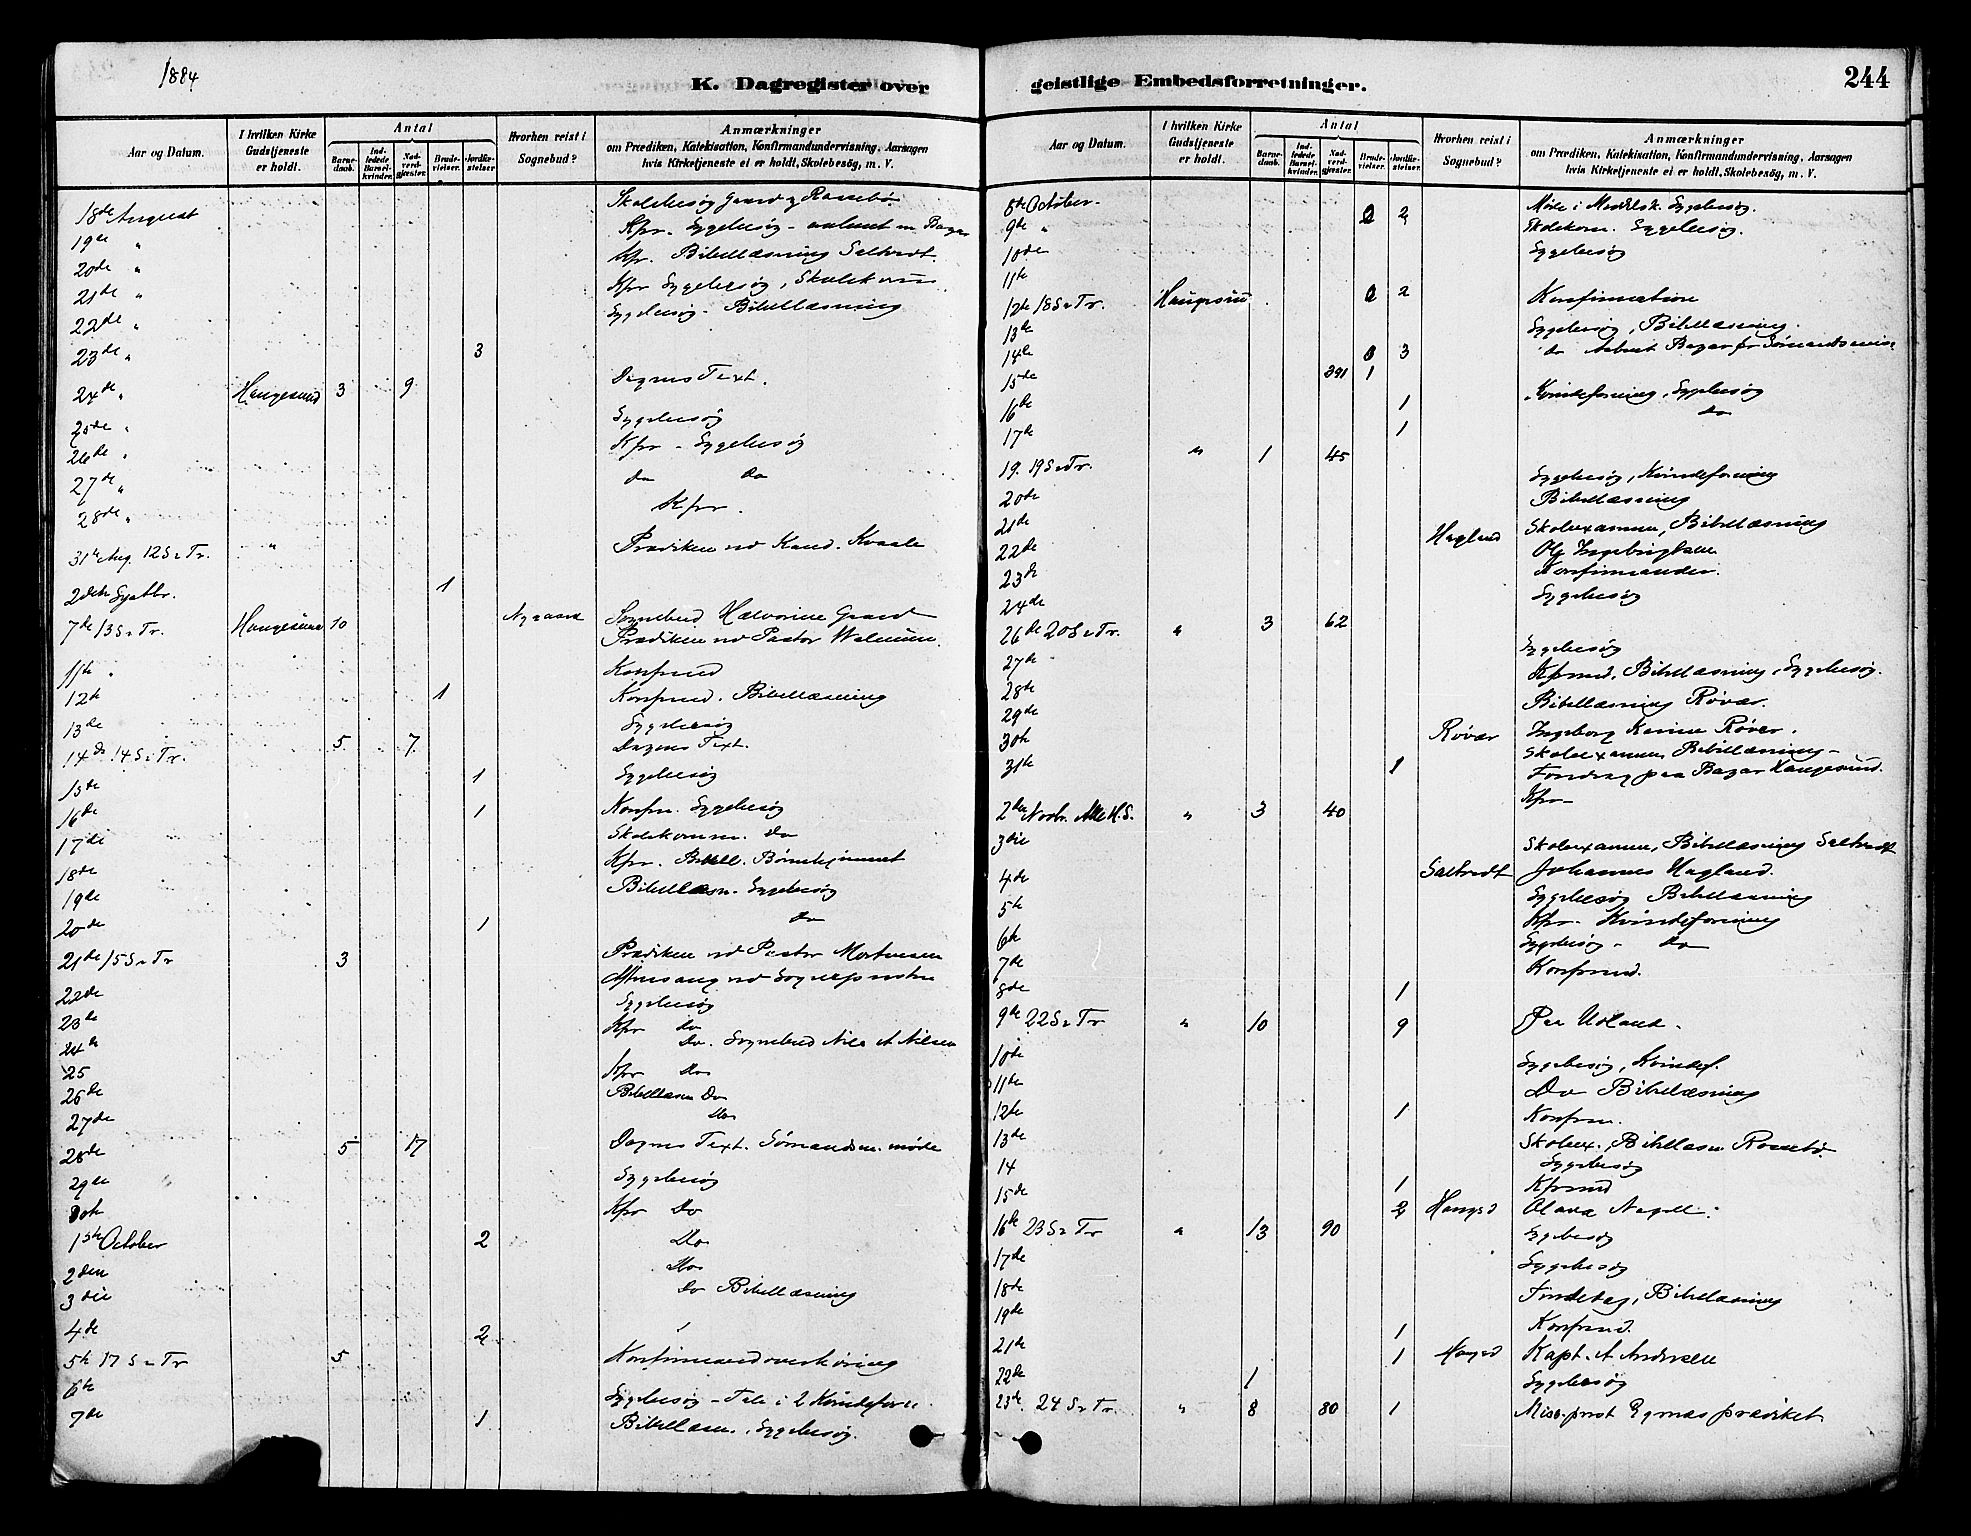 1884
K. Dagregister over
Aar og Datum. I hvilken Kirke Gudstjeneste er holdt. Antal Barnedaab. Indledede Barselkvinder. Nadverdgjæster. Brudevielser. Jordfæstelser Hvorhen reist i Sognebud? Anmærkninger om Prædiken, Katekisation, Konfirmandundervisning, Aarsagen hvis Kirketjeneste ei er holdt, Skolebesög, m. V.
18de August Skolebesøg Gaard og Rossebø
19de " Kfr. Sygebesøg - aabnet en Bazar
20de " Kfr. Bibellæsning Saltvedt.
21de " Kfr Sygebesøg, Skolekom
22de " Sygebesøg. Bibellæsning
23de " 3
24de " Haugesund 3 9 Dagens Text.
25de " Sygebesøg
26de " Kfr - Sygebesøg
27de " do do
28de " Kfr.
31te Aug. 12 S. e Tr. " Prædiken ved Kand. Kvaale
2den Septbr. 1
7de 13 S. e Tr. Haugesund 10 Sognebud Halvorine Gaard
Prædiken ved Pastor
11te " Konfrmd
12te 1 Konfrmd. Bibellæsning
13de Sygebesøg
14de 14 S. e Tr. 5 7 Dagens Text.
15de 1 Sygebesøg
16de 1 Konfrm. Sygebesøg
17de Skolekomm. Do
18de Kfr. Bibell. Børnehjemmet
19de Bibellæsn. Sygebesøg
20de 1 do
21de 15 S. e Tr 3 Prædiken ved Pastor Mortensen
22de Aftensang ved Sognepresten
23de Sygebesøg
24de Kfr do
Do. Sognebud Nils A Nilsen
25 Kfr Do
26de Bibellæsn Do
27de Do
28de 5 17 Dagens Text. Sømandsm. møde
29de Sygebesøg
30te Kfr Do
1ste October 2 Do
2den Do
3die Do Bibellæsning
4de 2
5te 17 S. e Tr 5 Konfirmandoverhøring
6te Sygebesøg - Tale i 2 Kvindeforen.
7de 1 Bibellæsn. Sygebesøg.
geistlige Embedsforretninger. 244
Aar og Datum. I hvilken Kirke Gudstjeneste er holdt. Antal Barnedaab. Indledede Barselkvinder. Nadverdgjæster. Brudevielser. Jordfæstelser. Hvorhen reist i Sognebud? Anmærkninger om Prædiken, Katekisation, Konfirmandundervisning, Aarsagen hvis Kirketjeneste ei er holdt, Skolebesög, m. V.
8de October. 2 2 Møde i Middelsk. Sygebesøg.
9de " Skolekom. Sygebesøg.
10de Sygebesøg
11te
12te 18 S. e Tr. Haugesund 2 2 Konfirmation
13de Sygebesøg, Bibellæsning.
14de 3 do Aabnet Bazar for Sømandsmiss
15de 391 1
16de 1 Kvindeforening, Sygebesøg
17de 1 do
19. 19 S. e Tr. " 1 45
20de Sygebesøg, Kvindeforening
21de Bibellæsning
22de Hagland Skolexamen, Bibellæsning
23de Konfirmander.
24de Sygebesøg
26de 20 S. e Tr. " 3 62
27de Sygebesøg
28de Kfrmd, Bibellæsning, Sygebesøg.
29de Bibellæsning Røvær.
30te Røvær Ingeborg Karine Røvær.
31te 1 Skolexamen Bibellæsning -
Foredrag paa Bazar Haugesund.
2den Novbr. Alle H.S. " 3 40 Kfr -
3die Skolexamen, Bibellæsning Saltvedt
4de Saltvedt Johannes Hagland.
5te Sygebesøg Bibellæsning
6te Kfr - Kvindeforening
7de Sygebesøg - Do
8de 1 Konfrmd.
9de 22 S. e Tr " 10 9 Paa Udland.
10de Sygebesøg, Kvindef.
11te Do Bibellæsning
12te 1 Konfrm.
13de Skolex. Bibellæsn Rossebø.
14 Sygebesøg
15de 1 Kfrmd
16de 23 S. e Tr " 13 90 2 Haugsd Olava
17de Sygebesøg
18de Sygebesøg
19de Foredrag, Bibellæsning
21de 1 Konfrmd.
22de 1 1 Haugsd Kapt. A Andersen
Sygebesøg
23de. 24 S. e Tr. " 8 80 1 Miss. prst Egenæs prædiket